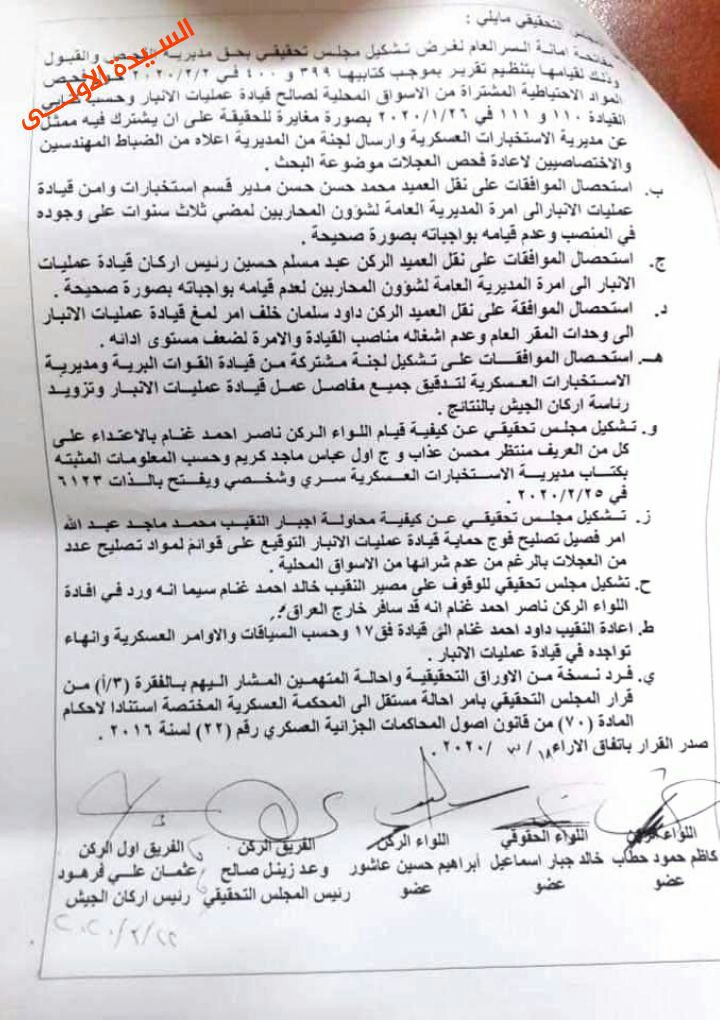 السيدة الاولى
المجلس التحقيقي مايلي :
مفاتحة امانة السر العام لغرض تشكيل مجلس تحقيقي بحق مديرية الفحص والقبول
وذلك لقيامها بتنظيم تقرير بموجب كتابيها ٣٩٩ و ٤٠٠ في ٢٠٢٠/٢/٢ فحص
المواد الاحتياطية المشتراة من الاسواق المحلية لصالح قيادة عمليات الانبار وحسب كتابي
القيادة ١١٠ و ١١١ في ٢٠٢٠/١/٢٦ بصورة مغايرة للحقيقة على ان يشترك فيه ممثل
عن مديرية الاستخبارات العسكرية وارسال لجنة من المديرية اعلاه من الضباط المهندسين
والاختصاصيين لاعادة فحص العجلات موضوعة البحث .
ب. استحصال الموافقات على نقل العميد محمد حسن حسن مدير قسم استخبارات وامن قيادة
عمليات الانبارالى امرة المديرية العامة لشؤون المحاربين لمضي ثلاث سنوات على وجوده
في المنصب وعدم قيامه بواجباته بصورة صحيحة .
ج. استحصال الموافقات على نقل العميد الركن عبد مسلم حسين رئيس اركان قيادة عمليات
الانبار الى امرة المديرية العامة لشؤون المحاربين لعدم قيامه بواجباته بصورة صحيحة .
د. استحصال الموافقة على نقل العميد الركن داود سلمان خلف امر لمغ قيادة عمليات الانبار
الى وحدات المقر العام وعدم اشغاله مناصب القيادة والامرة لضعف مستوى ادائه .
هـ. استحصال الموافقات على تشكيل لجنة مشتركة من قيادة القوات البرية ومديرية
الاستخبارات العسكرية لتدقيق جميع مفاصل عمل قيادة عمليات الانبار وتزويد
رئاسة اركان الجيش بالنتائج .
و. تشكيل مجلس تحقيقي عن كيفية قيام اللواء الركن ناصر احمد غنام بالاعتداء على
كل من العريف منتظر محسن عذاب و ج اول عباس ماجد كريم وحسب المعلومات المثبته
بكتاب مديرية الاستخبارات العسكرية سري وشخصي ويفتح بالذات ٦١٢٣
في ٢٠٢٠/٢/٢٥ .
ز. تشكيل مجلس تحقيقي عن كيفية محاولة اجبار النقيب محمد ماجد عبد الله
امر فصيل تصليح فوج حماية قيادة عمليات الانبار التوقيع على قوائم لمواد تصليح عدد
من العجلات بالرغم من عدم شرائها من الاسواق المحلية .
ح. تشكيل مجلس تحقيقي للوقوف على مصير النقيب خالد احمد غنام سيما انه ورد في افادة
اللواء الركن ناصر احمد غنام انه قد سافر خارج العراق .
ط. اعادة النقيب داود احمد غنام الى قيادة فق١٧ وحسب السياقات والاوامر العسكرية وانهاء
تواجده في قيادة عمليات الانبار .
ي. فرد نسخة من الاوراق التحقيقية واحالة المتهمين المشار اليهم بالفقرة (٣/أ) من
قرار المجلس التحقيقي بامر احالة مستقل الى المحكمة العسكرية المختصة استنادا لاحكام
المادة (٧٠) من قانون اصول المحاكمات الجزائية العسكري رقم (٢٢) لسنة ٢٠١٦ .
صدر القرار باتفاق الاراء ١٨/ ٣/ ٢٠٢٠ .
اللواء الركن اللواء الحقوقي اللواء الركن الفريق الركن الفريق اول الركن
كاظم حمود حطاب خالد جبار اسماعيل أبراهيم حسين عاشور وعد زينل صالح عثمان علي فرهود
عضو عضو عضو رئيس المجلس التحقيقي رئيس اركان الجيش